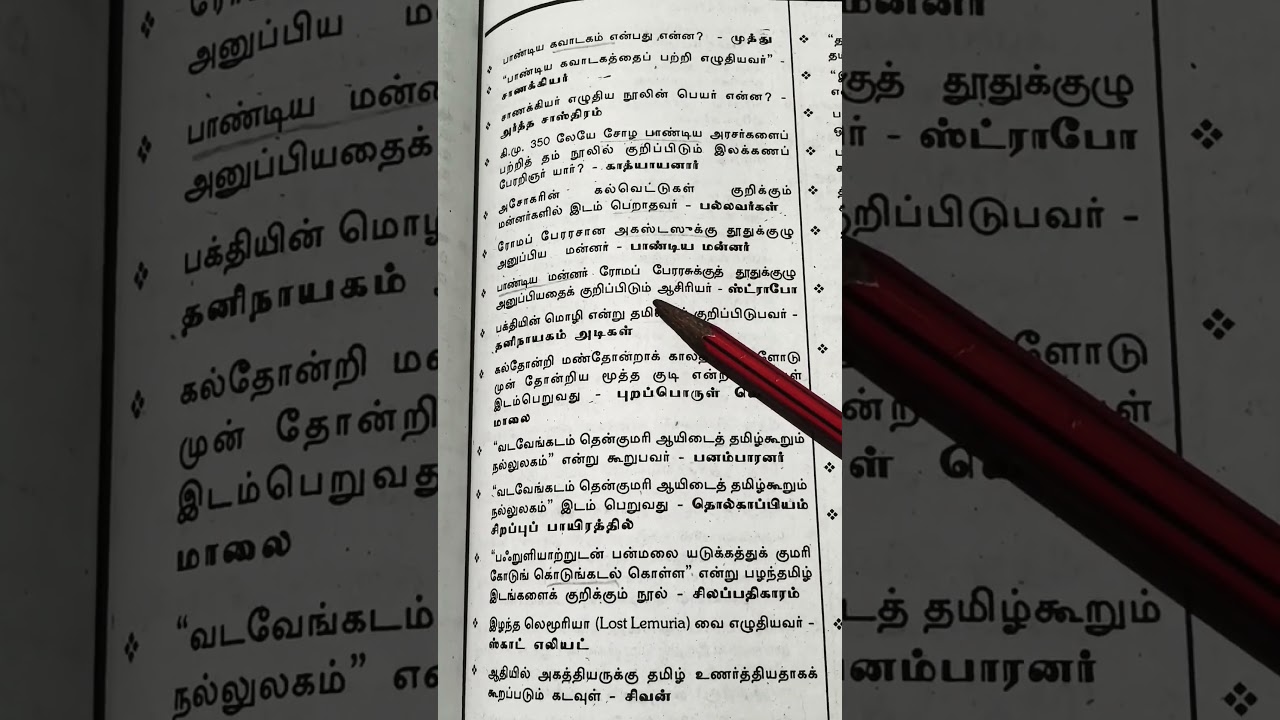 பாண்டிய கவாடகம் என்பது என்ன? - முத்து
"பாண்டிய கவாடகத்தைப் பற்றி எழுதியவர்" -
சாணக்கியர்
சாணக்கியர் எழுதிய நூலின் பெயர் என்ன? -
அர்த்த சாஸ்திரம்
கி.மு. 350 லேயே சோழ பாண்டிய அரசர்களைப்
பற்றித் தம் நூலில் குறிப்பிடும் இலக்கணப்
பேரறிஞர் யார்? - காத்யாயனார்
அசோகரின் கல்வெட்டுகள் குறிக்கும்
மன்னர்களில் இடம் பெறாதவர் - பல்லவர்கள்
ரோமப் பேரரசான அகஸ்டஸுக்கு தூதுக்குழு
அனுப்பிய மன்னர் - பாண்டிய மன்னர்
பாண்டிய மன்னர் ரோமப் பேரரசுக்குத் தூதுக்குழு
அனுப்பியதைக் குறிப்பிடும் ஆசிரியர் - ஸ்ட்ராபோ
பக்தியின் மொழி என்று குறிப்பிடுபவர் -
தனிநாயகம் அடிகள்
கல்தோன்றி மண்தோன்றாக்
முன் தோன்றிய மூத்த குடி
இடம்பெறுவது - புறப்பொருள்
மாலை
"வடவேங்கடம் தென்குமரி ஆயிடைத் தமிழ்கூறும்
நல்லுலகம்" என்று கூறுபவர் - பனம்பாரனர்
"வடவேங்கடம் தென்குமரி ஆயிடைத் தமிழ்கூறும்
நல்லுலகம்" இடம் பெறுவது - தொல்காப்பியம்
சிறப்புப் பாயிரத்தில்
"பஃறுளியாற்றுடன் பன்மலை யடுக்கத்துக் குமரி
கோடுங் கொடுங்கடல் கொள்ள" என்று பழந்தமிழ்
இடங்களைக் குறிக்கும் நூல் - சிலப்பதிகாரம்
இழந்த லெமூரியா (Lost Lemuria) வை எழுதியவர் -
ஸ்காட் எலியட்
ஆதியில் அகத்தியருக்கு தமிழ் உணர்த்தியதாகக்
கூறப்படும் கடவுள் - சிவன்